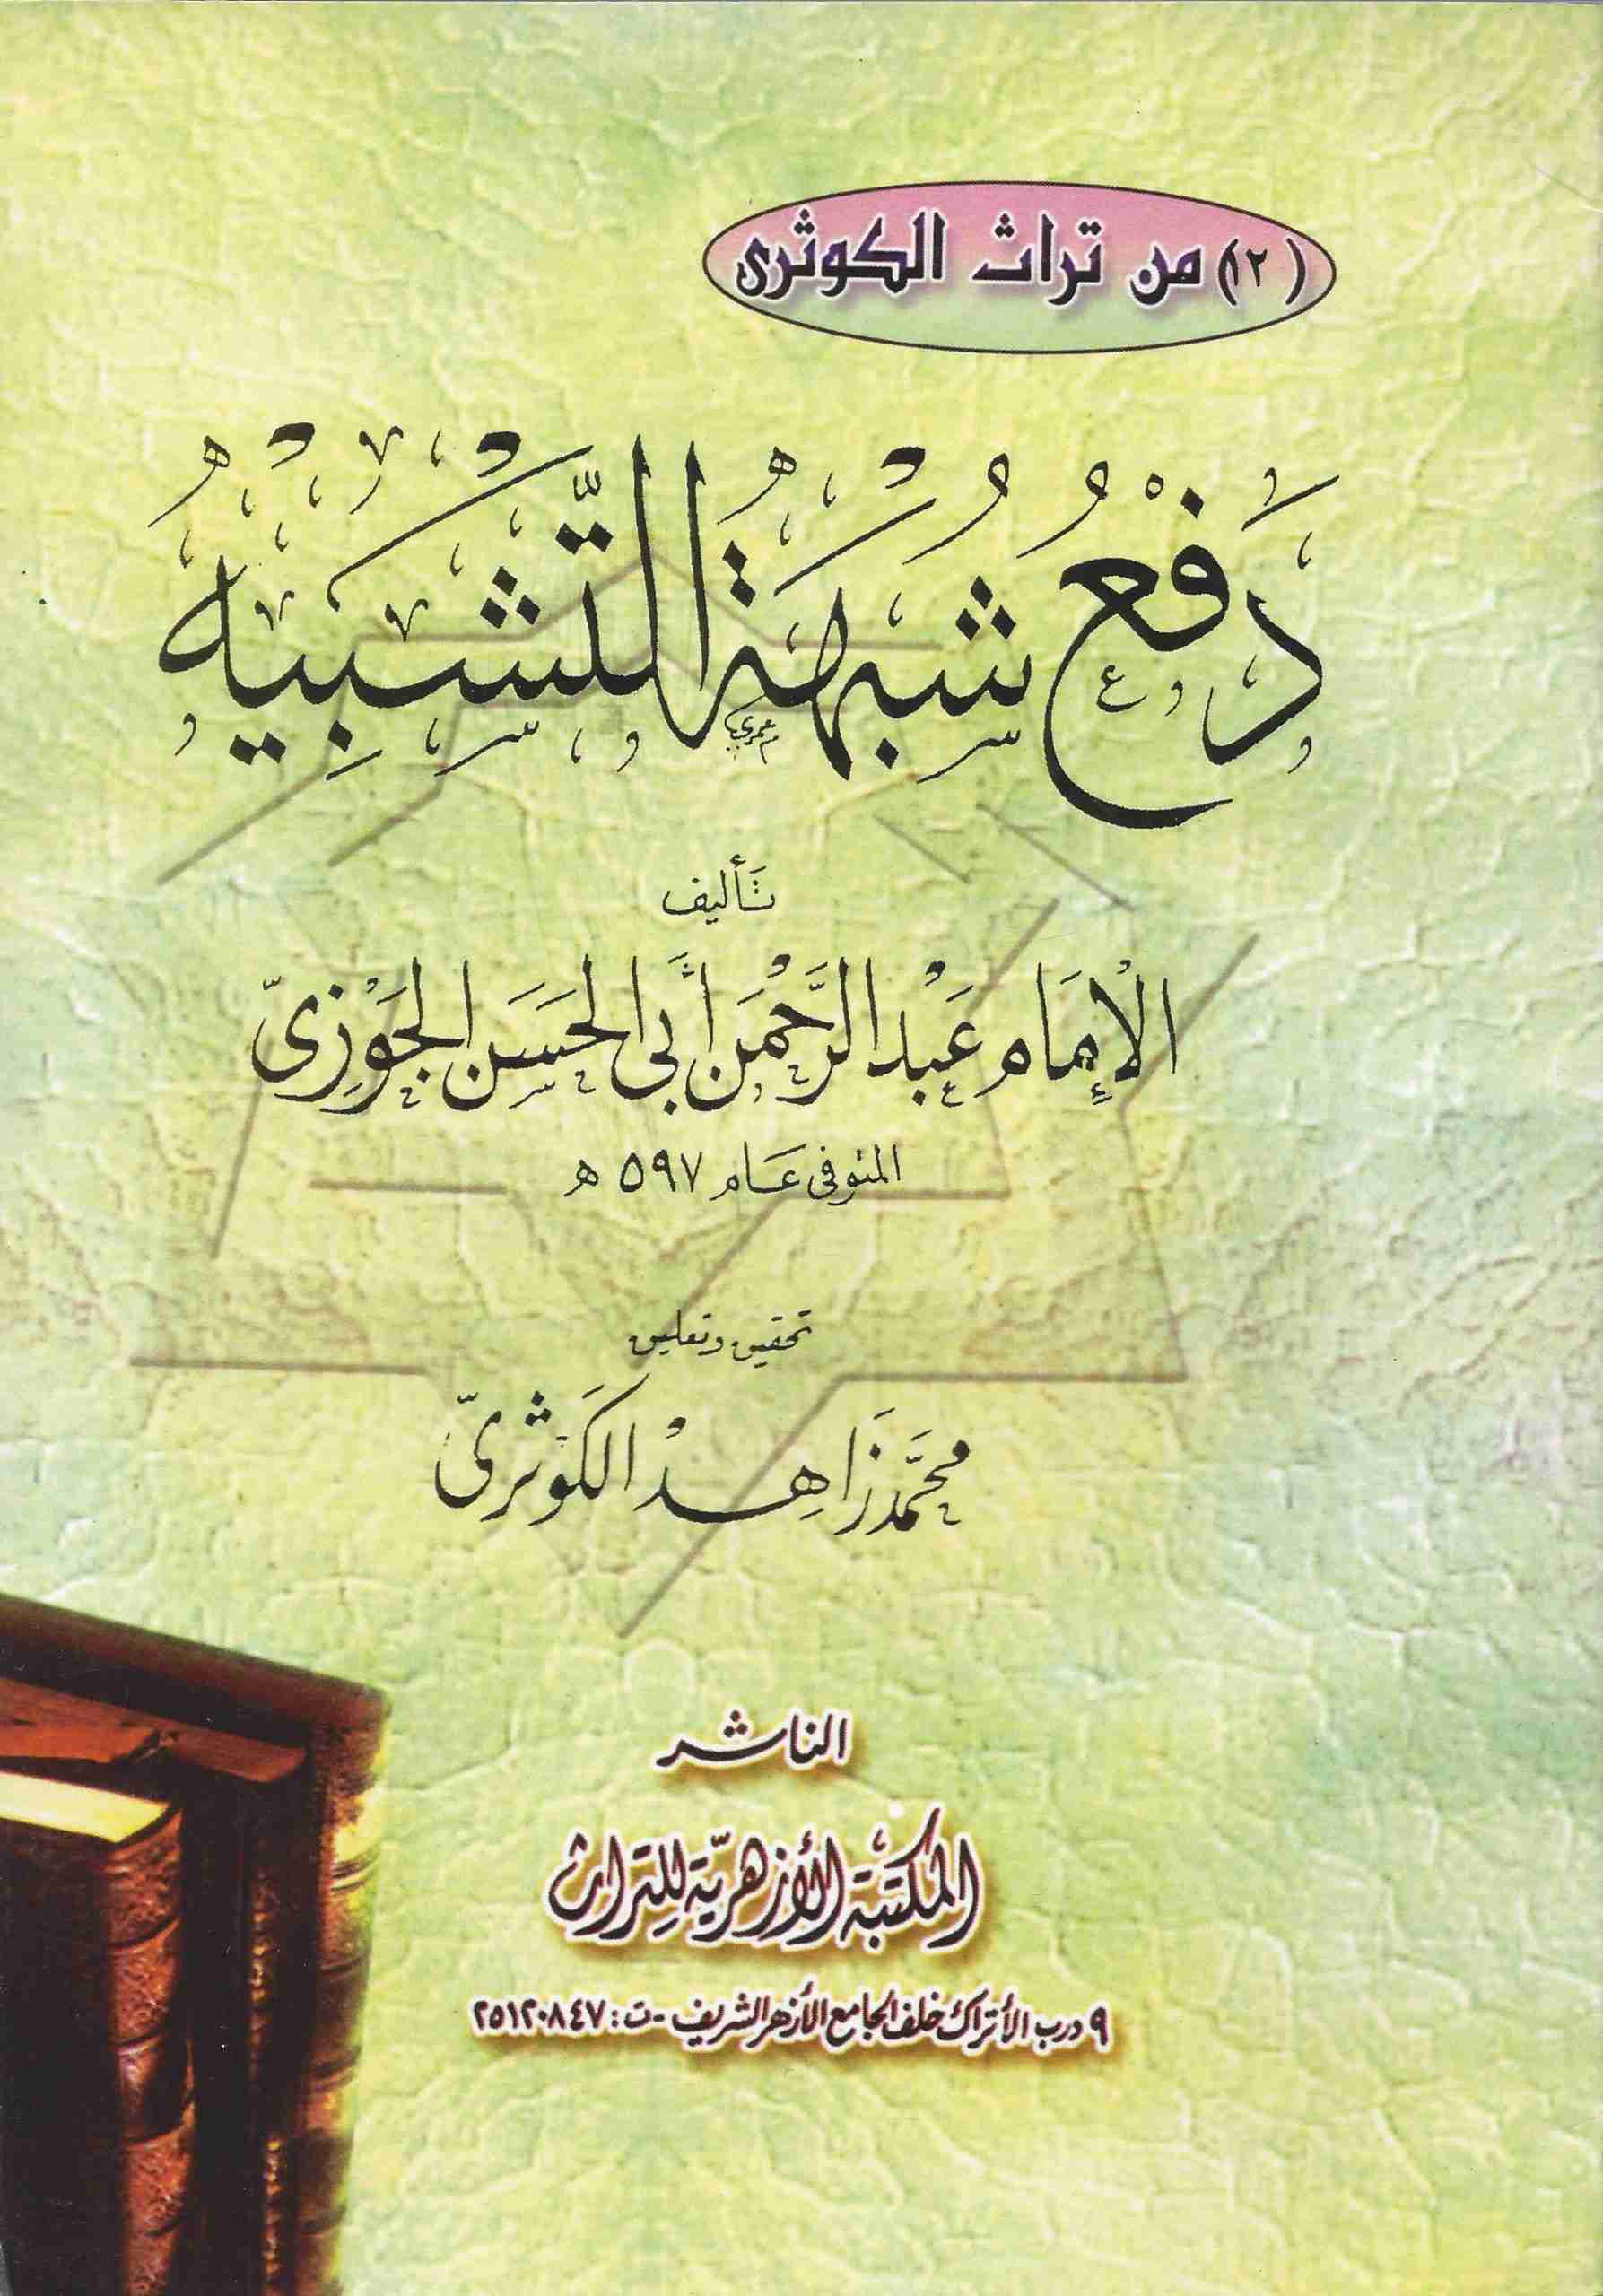 (١٢) من تراث الكوثرى
دَفْعُ شُبْهَةُ التَّشْبِيْهُ
تأليف
الْإِمَام عَبْد الرَّحْمَن أَبى الحَسَن الجَوْزِىّ
المتوفى عَام ٥٩٧ ه
تحقيق وتعليق
محمَّد زَاهِدْ الكَوْثرىّ
الناشر
المكتبة الأزهريّة للِتراث
٩ درب الأتراك خلف الجامع الأزهر الشريف - ت: ٢٥١٢٠٨٤٧